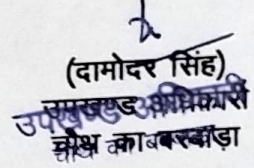 (दामोदर सिंह)
उपखण्ड अधिकारी
चौथ का बरवाड़ा